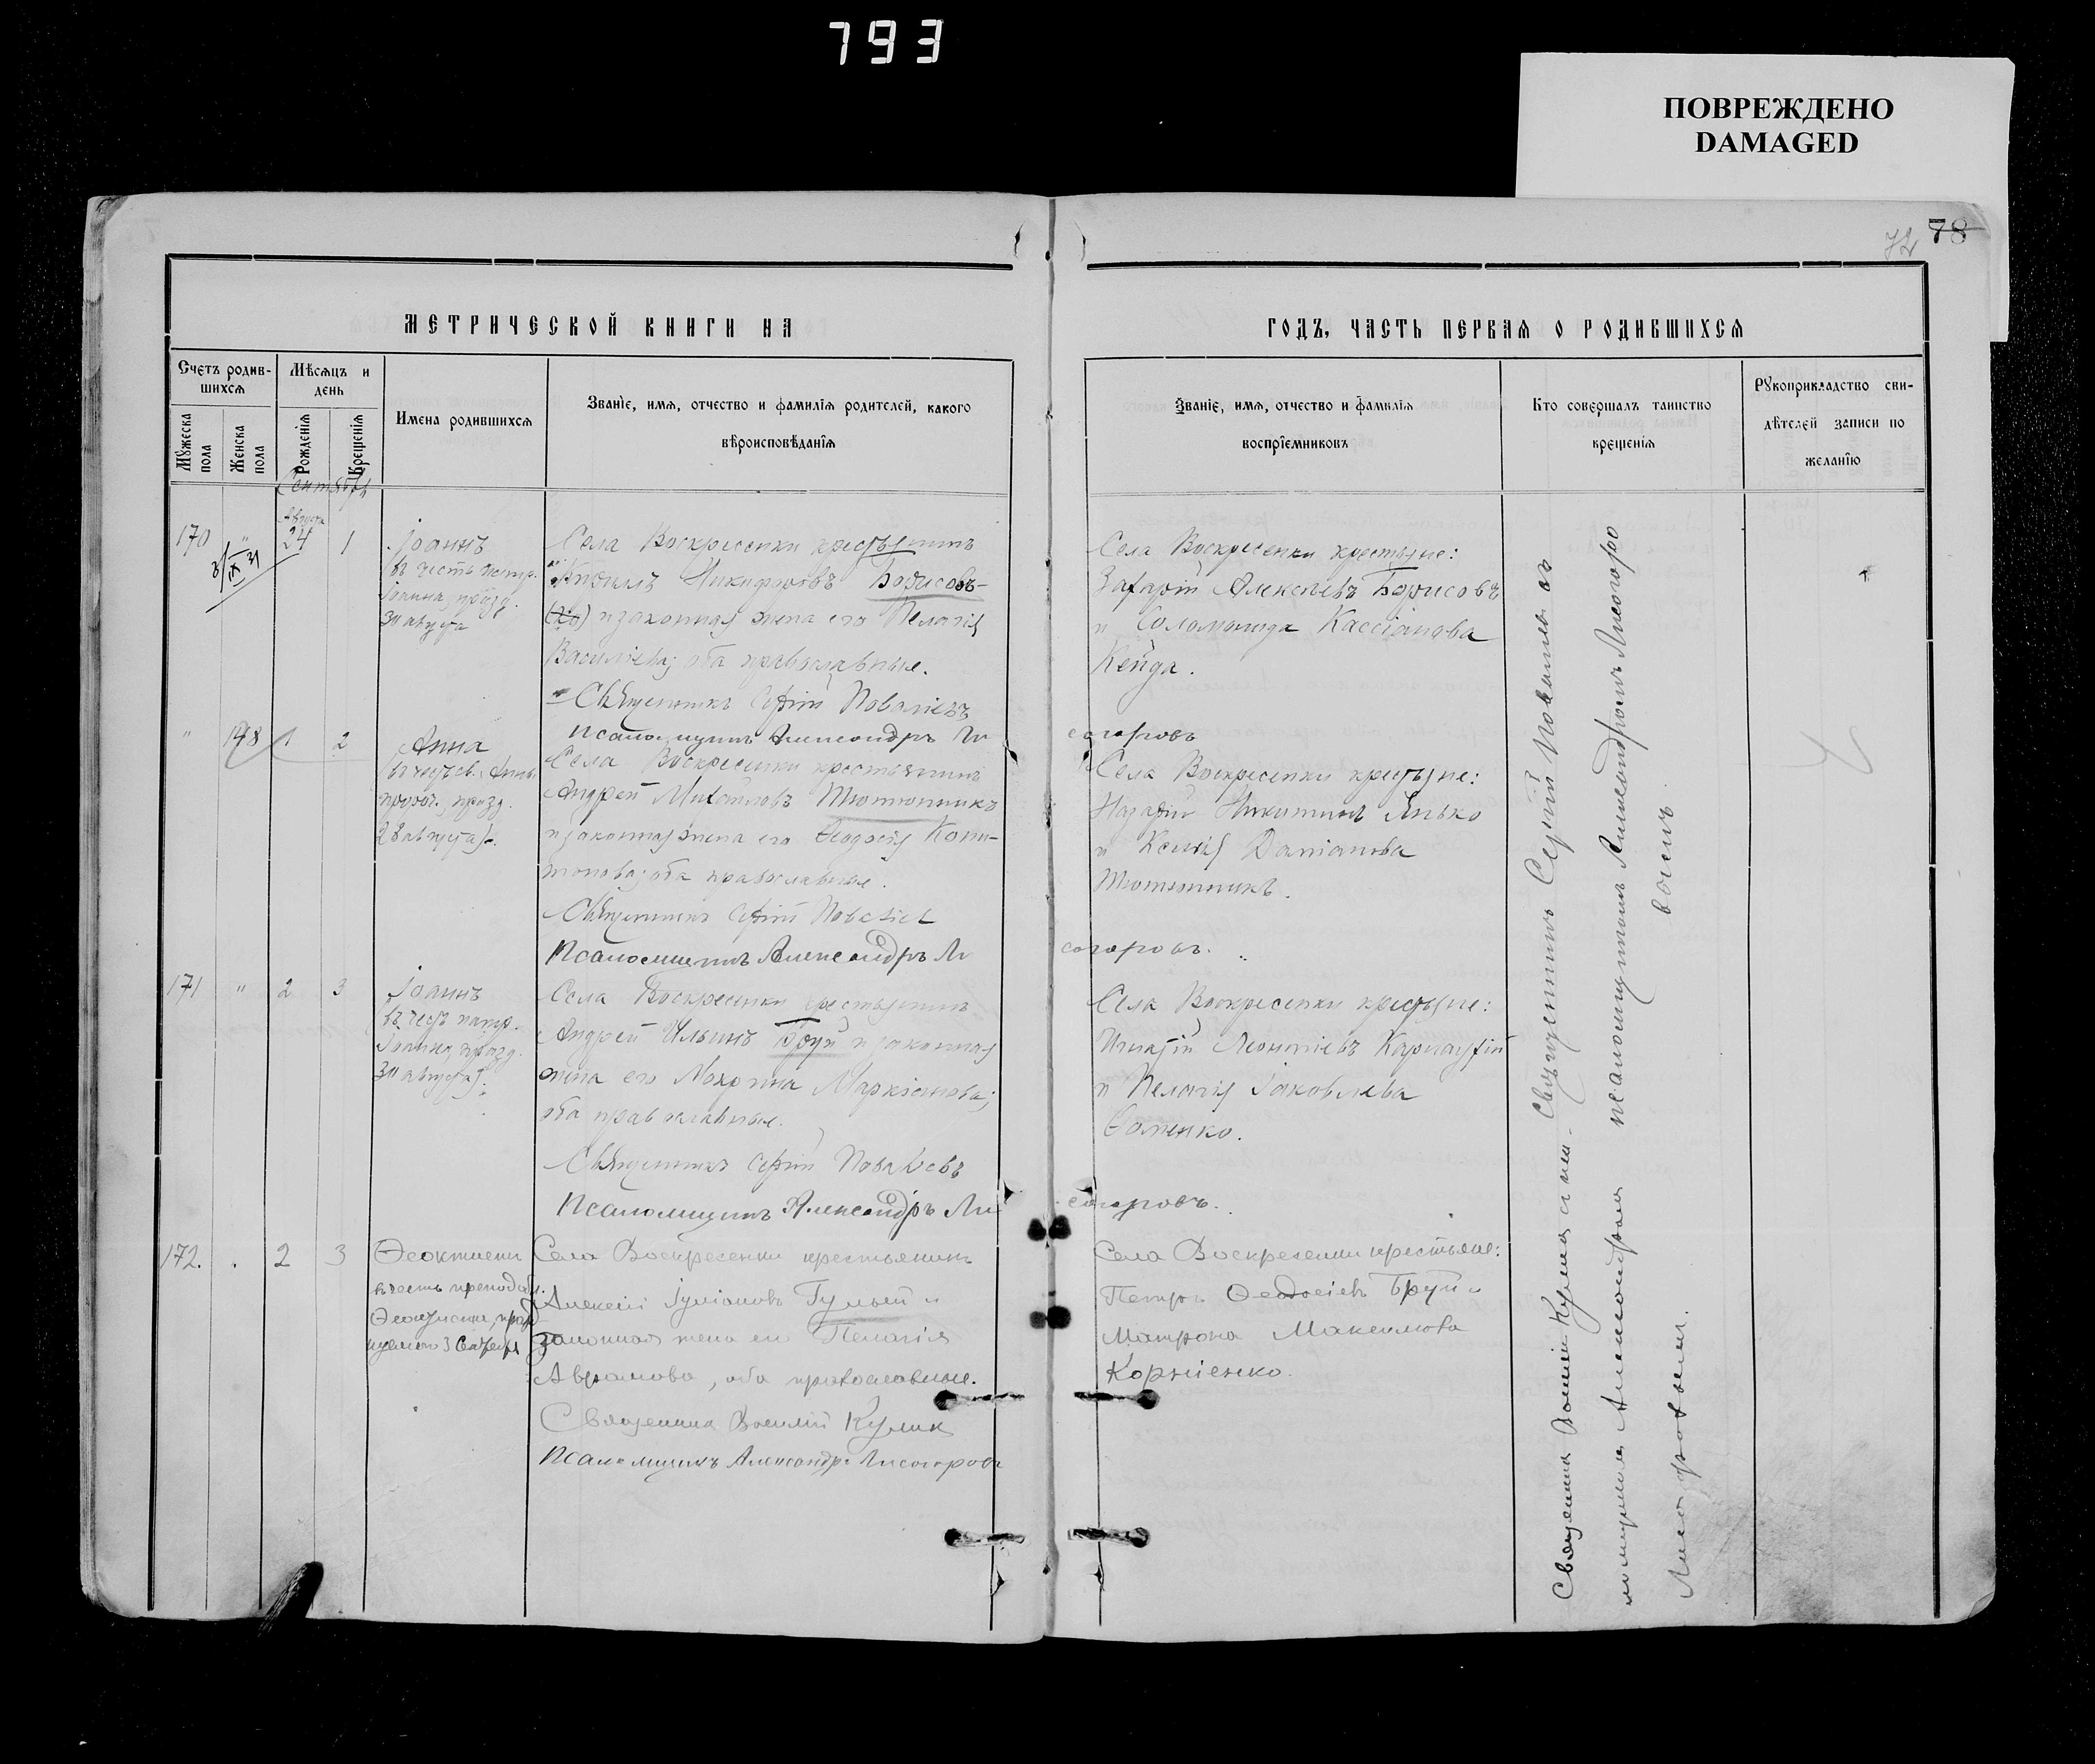 793
ПОВРЕЖДЕНО
DAMAGED
72 78
МЕТРИЧЕСКОЙ КНИГИ НА
ГОДЪ, ЧАСТЬ ПЕРВАЯ О РОДИВШИХСЯ
Счетъ родив-
шихся
Мѣсяцъ и
день
Мужеска
пола
Женска
пола
Рожденія
Крещенія
Имена родившихся
Званіе, имя, отчество и фамилія родителей, какого
вѣроисповѣданія
Званіе, имя, отчество и фамилія
воспріемниковъ
Кто совершалъ таинство
крещенія
Рукоприкладство сви-
дѣтелей записи по
желанію
Сентябрь
Августа
170 " 24 1
Іоаннъ
въ честь
Іоанна, празд.
30 августа
Села Воскресенки крестьянинъ
Никифоровъ Борисов-
(ко) и законная жена его Пелагія
Васильева; оба православные.
Священникъ Сергій Поваліевъ
Псаломщикъ Александръ Ли
согоровъ
Села Воскресенки крестьяне:
Захарій Алексѣевъ Борисовъ
и Соломонида Кассіанова
Кейда.
" 148 1 2
Анна
въ честь св. Анны
пророч. празд.
28 августа.
Села Воскресенки крестьянинъ
Андрей Михайловъ Тютюнникъ
и законная жена его Феодосія Капи-
тонова; оба православные.
Священникъ Сергій Поваліевъ
Псаломщикъ Александръ Ли
согоровъ.
Села Воскресенки крестьяне:
Назарій Никитинъ Янько
и Ксенія Даміанова
Тютюнникъ.
171 " 2 3
Іоаннъ
въ честь патр.
Іоанна, празд.
30 августа.
Села Воскресенки крестьянинъ
Андрей Ильинъ Бруй и законная
жена его Макрина Маркіанова;
оба православные.
Священникъ Сергій Поваліевъ
Псаломщикъ Александръ Ли
согоровъ.
Села Воскресенки крестьяне:
Игнатій Леонтіевъ
и Пелагія Іаковлева
Фоменко.
172. . 2 3
Феоктистъ
въ честь преподобн.
Феоктиста, празд
нуемаго 3 Сентября
Села Воскресенки крестьянинъ
Алексій Іуліановъ и
законная жена его Пелагія
Аврамова, оба православные.
Священникъ Василій Куликъ
Псаломщикъ Александръ Лисогоровъ
Села Воскресенки крестьяне:
Петръ Феодосіевъ Бруй и
Матрона Максимова
Корніенко.
Священникъ Сергій Поваліевъ съ
псаломщикомъ Александромъ Лисогоро
вымъ.
Священникъ Василій Куликъ съ пса-
ломщикомъ Александромъ
Лисогоровымъ.